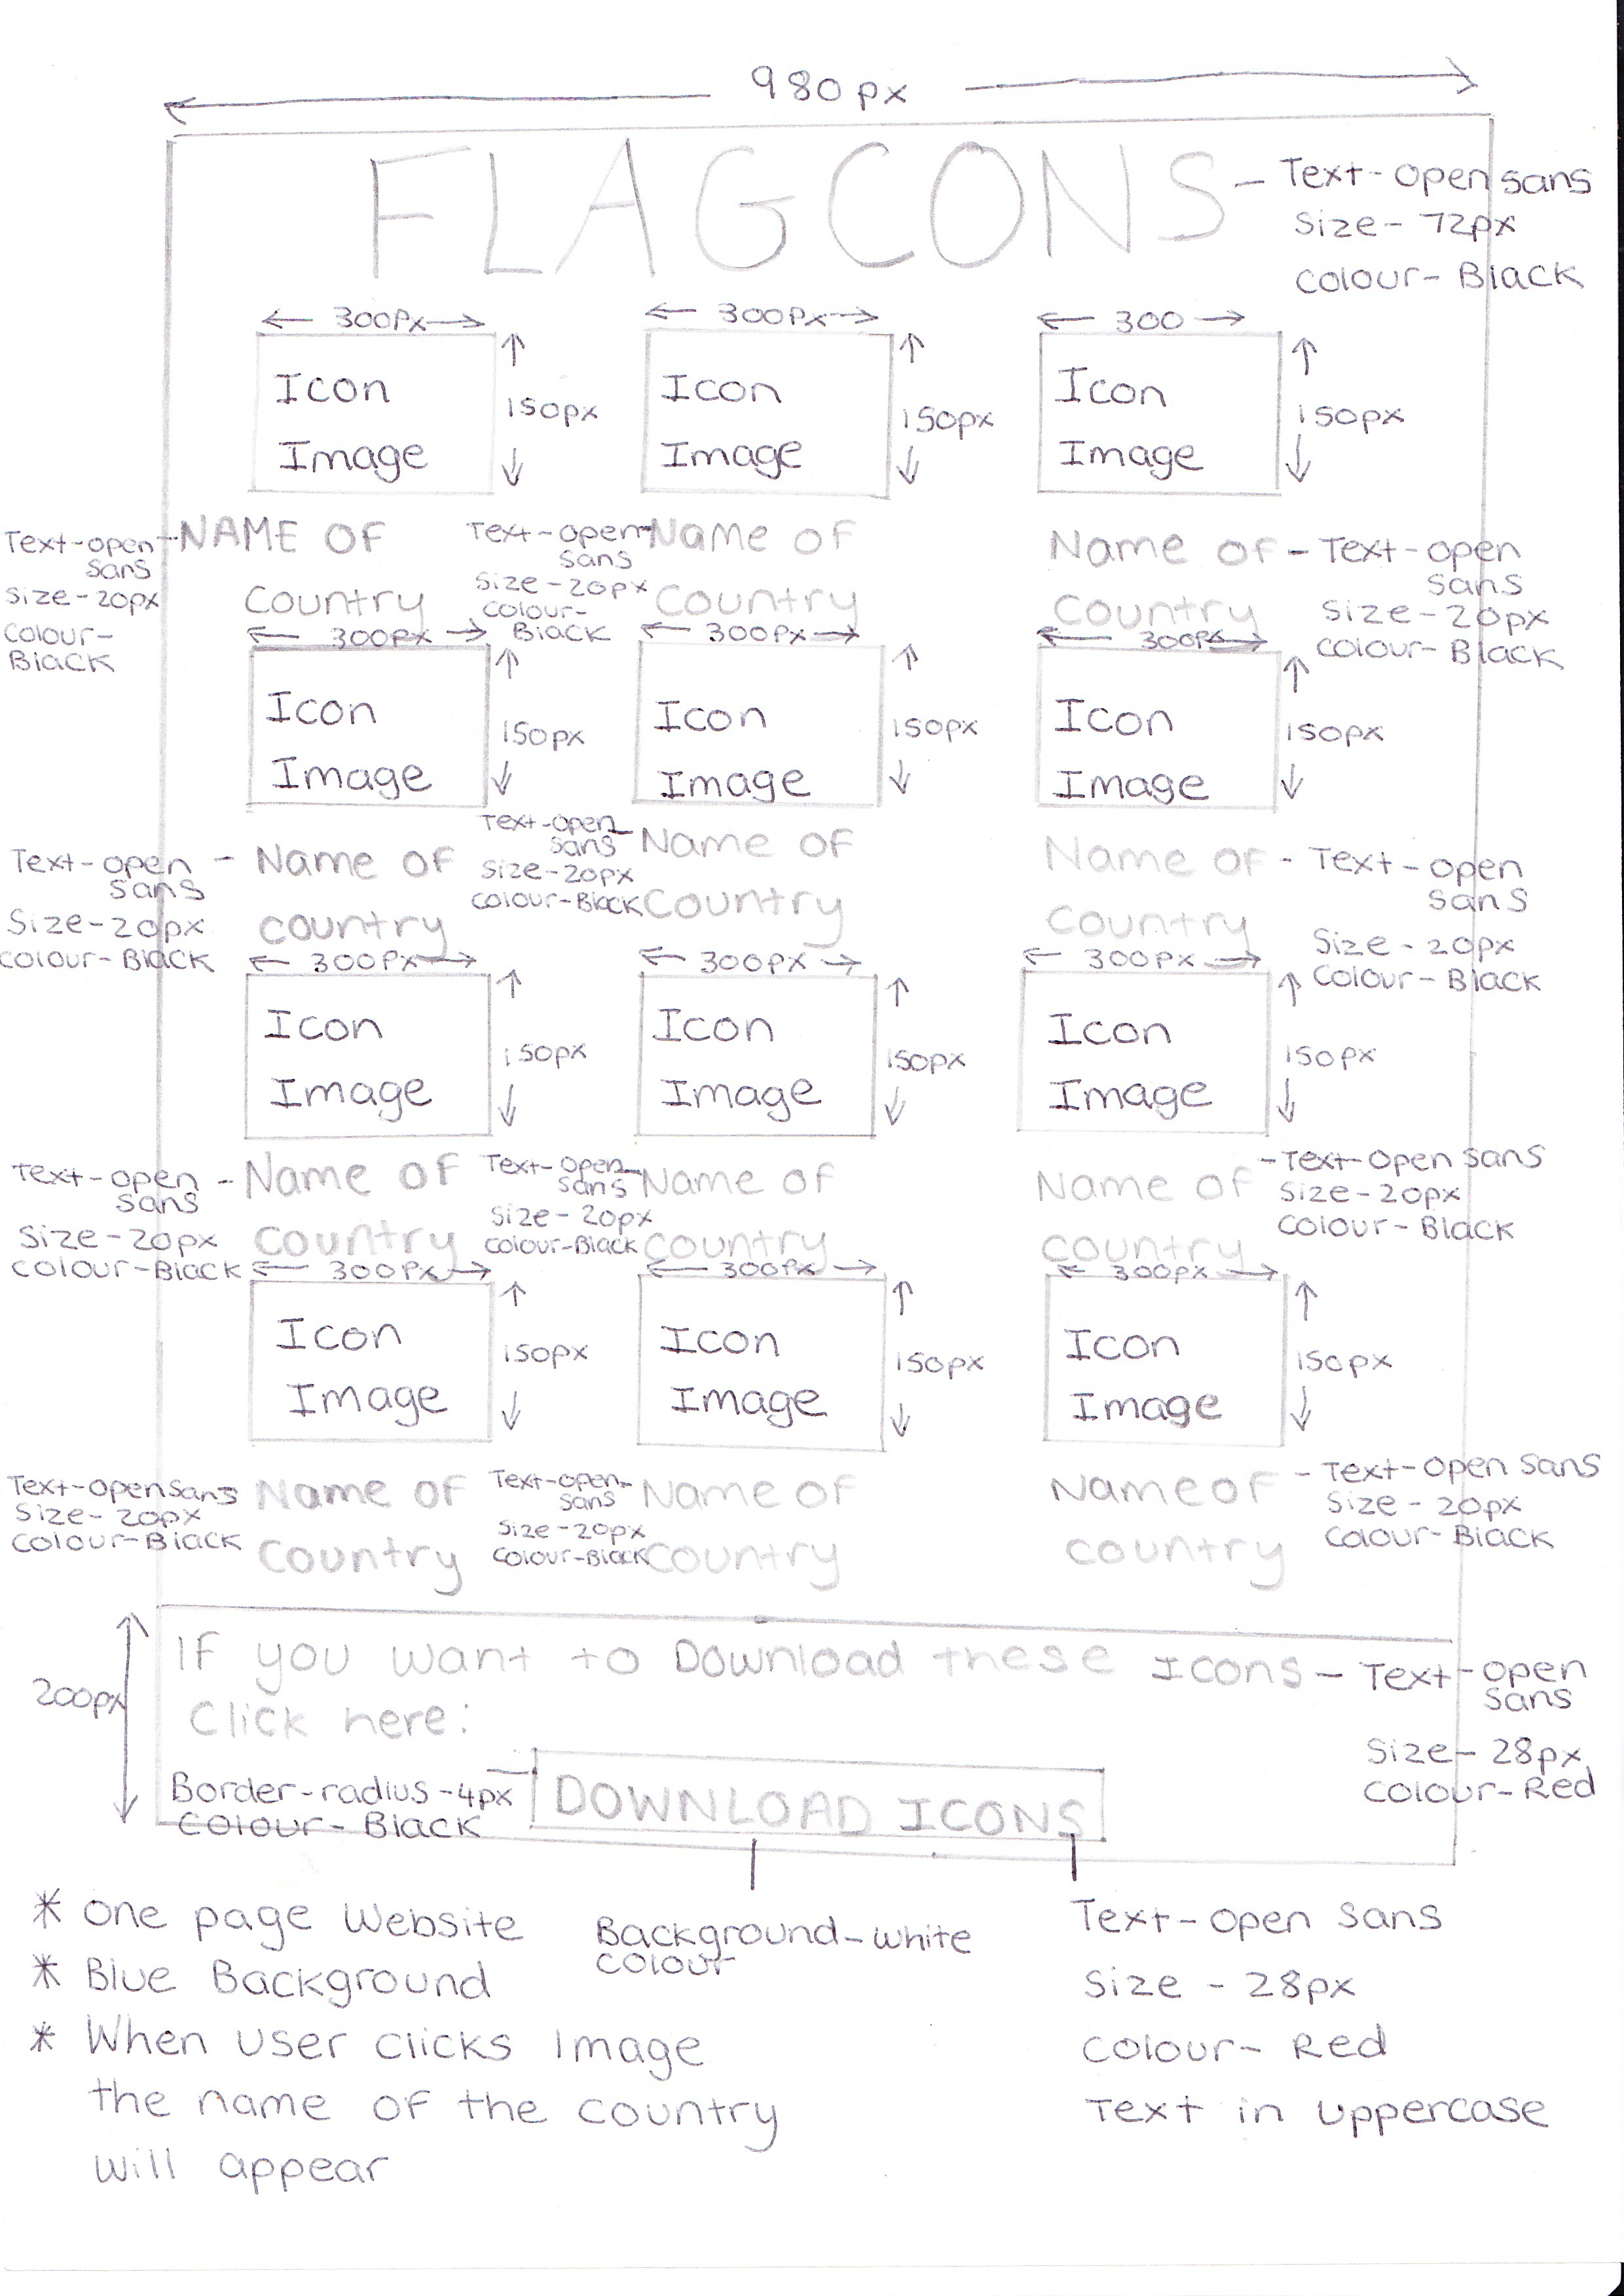 980px
FLAGCONS
- Text-Open Sans
Size- 72px
Colour- Black
300Px
300Px
300
Icon
Image
150px
Icon
Image
150px
Icon
Image
150px
Text-open
Sans
Size-20px
Colour-
Black
NAME OF
Country
Text-open
Sans
Size-20px
Colour-
Black
Name of
Country
Name of
Country
- Text-open
Sans
Size-20px
Colour-Black
300Px
300Px
300Px
Icon
Image
150px
Icon
Image
150px
Icon
Image
150px
Text-open
Sans
Size-20px
Colour-Black
- Name of
Country
Text-open
Sans
Size-20px
Colour-Black
Name of
Country
Name of
Country
- Text-open
Sans
Size-20px
Colour-Black
300Px
300Px
300Px
Icon
Image
150px
Icon
Image
150px
Icon
Image
150px
Text-open
Sans
Size-20px
Colour-Black
- Name of
Country
Text-open
Sans
Size-20px
Colour-Black
Name of
Country
Name of
Country
- Text-Open Sans
Size-20px
Colour-Black
300Px
300Px
300px
Icon
Image
150px
Icon
Image
150px
Icon
Image
150px
Text-Open Sans
Size-20px
Colour-Black
Name of
Country
Text-open-
Sans
Size-20px
Colour-Black
Name of
Country
Name of
country
- Text-Open Sans
Size-20px
Colour-Black
200px
If you want to Download these Icons
Click here:
- Text-open
Sans
Size-28px
Colour-Red
Border-radius-4px
Colour-Black
DOWNLOAD ICONS
* One page Website
* Blue Background
* When user clicks Image
the name of the country
will appear
Background-White
Colour
Text-Open Sans
Size - 28px
Colour- Red
Text in uppercase